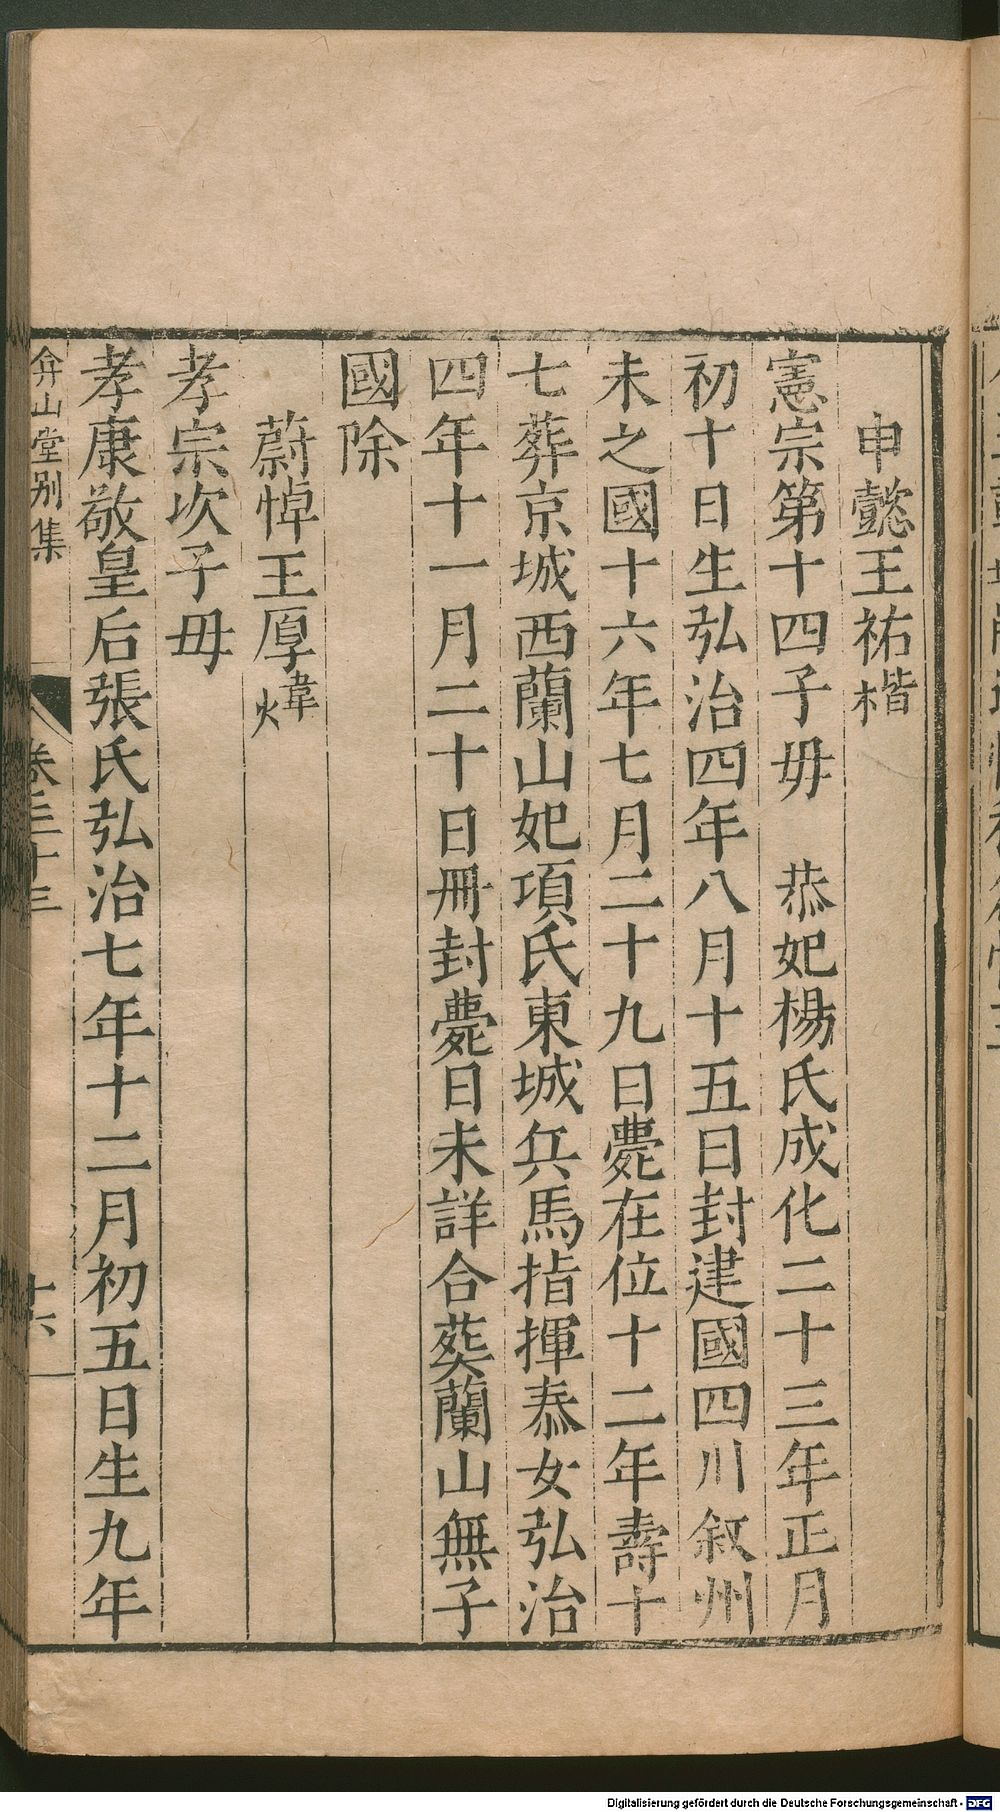 申懿王祐楷
憲宗第十四子毋　恭妃楊氏成化二十三年正月
初十日生弘治四年八月十五日封建國四川叙州
未之國十六年七月二十九日薨在位十二年壽十
七葬京城西蘭山妃項氏東城兵馬指揮恭女弘治
四年十一月二十日冊封薨日未詳合葬蘭山無子
國除
蔚悼王厚煒
孝宗次子毋
孝康敬皇后張氏弘治七年十二月初五日生九年
弇山堂別集
卷三十三
十六
Digitalisierung gefördert durch die Deutsche Forschungsgemeinschaft - DFG